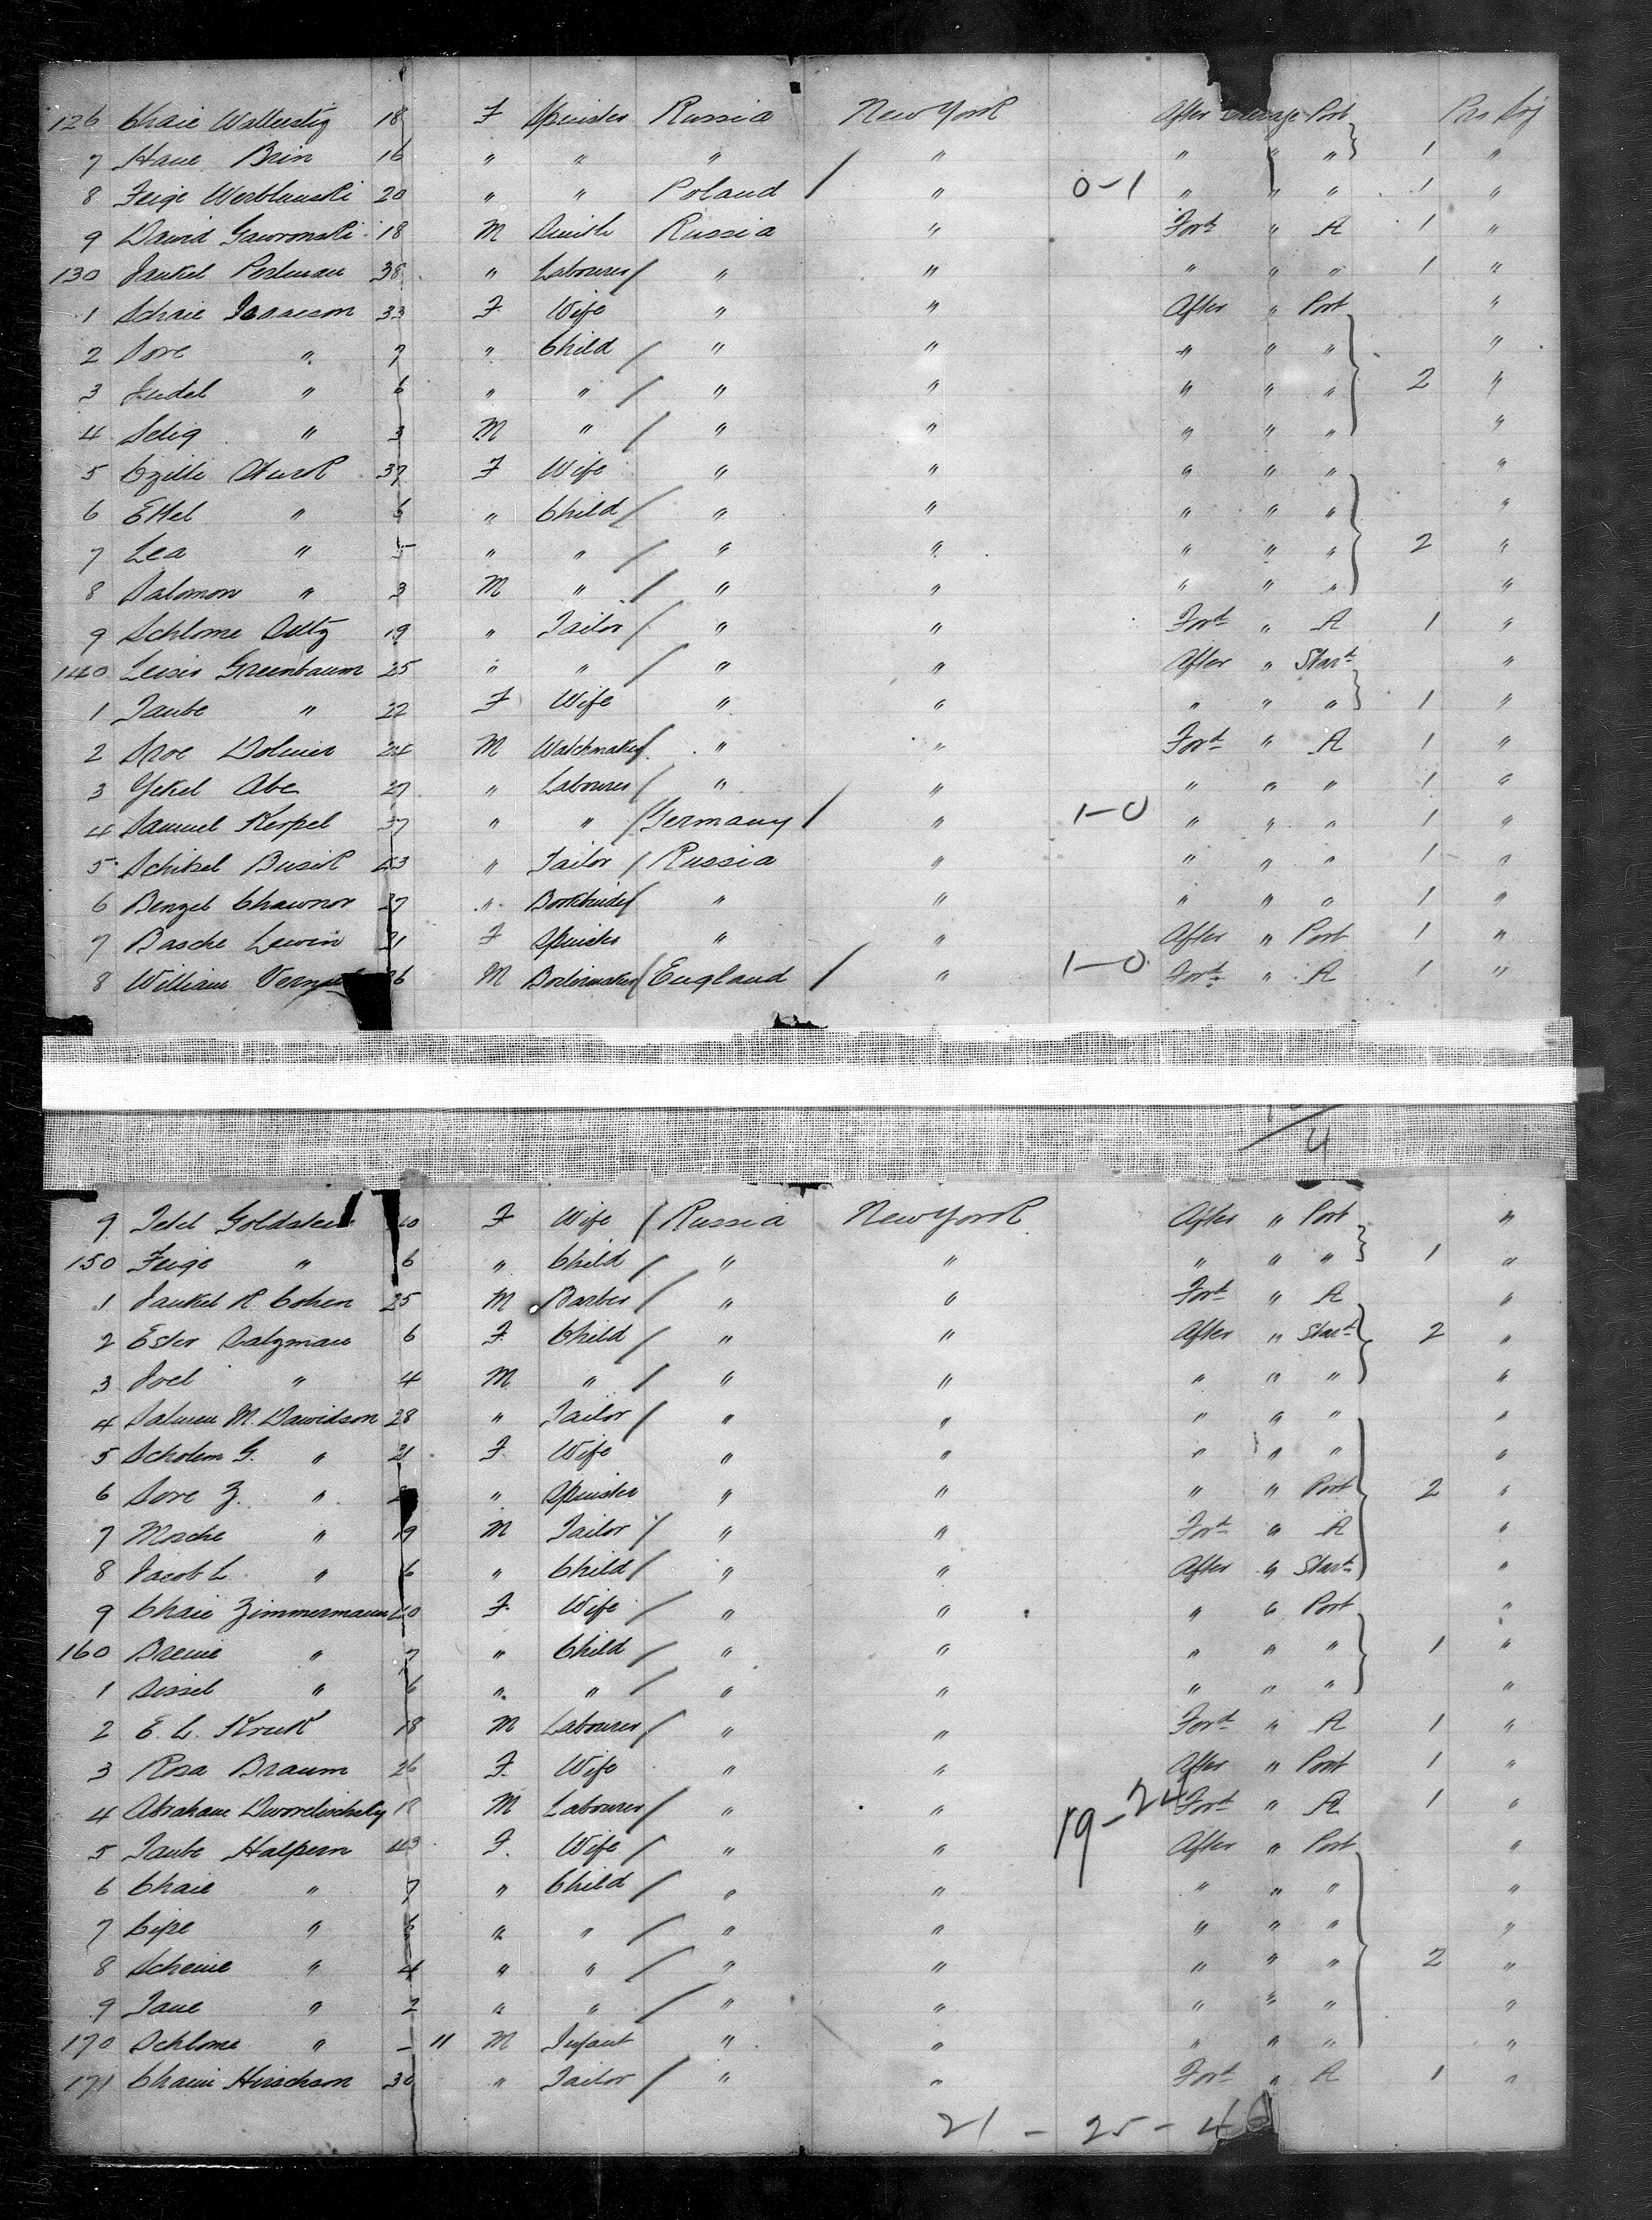 126 Chaie 18 F Spinster Russia New York After Steerage Port
7 Haue Brin 16 " " " " " " " 1 "
8 Feige Werblunski 20 " " Poland " 0-1 " " " 1 "
9 David Gawronski 18 M Smith Russia " Ford " A 1 "
130 Jankel Perlman 38 " Labourer " " " " " 1 "
1 Schaie Isaacson 33 F Wife " " After " Port "
2 Sore " 7 " Child " " " " " "
3 Judel " 6 " " " " " " " 2 "
4 Selig " 3 M " " " " " " "
5 Czilli 37 F Wife " " " " " "
6 Ettel " " Child " " " " " "
7 Lea " 5 " " " " " " " 2 "
8 Salomon " 3 M " " " " " " "
9 Schlome 19 " Tailor " " Ford " A 1 "
140 Leiser Greenbaum 25 " " " " After " Stard "
1 Taube " 22 F Wife " " " " " 1 "
2 Sroe Dolmier 24 M Watchmaker " " Ford " A 1 "
3 Yekel Abe 27 " Labourer " " " " " 1 "
4 Samuel Kerpel 37 " " Germany " 1-0 " " " 1 "
5 Schikel Busik 23 " Tailor Russia " " " " 1 "
6 Benzel Chawnor 27 " Bookbinder " " " " " 1 "
7 Basche Lewin 21 F Spinster " " After " Port 1 "
8 William 26 M Boilermaker England " 1-0 Ford " A 1 "
4
9 Tetel Goldstein 40 F Wife Russia New York After " Port "
150 Feige " 6 " Child " " " " " 1 "
1 Jankel R. Cohen 25 M Barber " " Ford " A "
2 Ester Salzman 6 F Child " " After " Stard 2 "
3 Joel " 4 M " " " " " " "
4 Salmen M. Dawidson 28 " Tailor " " " " " "
5 Scholem G. " 21 F Wife " " " " " "
6 Sore Z. " " Spinster " " " " Port 2 "
7 Mosche " 19 M Tailor " " Ford " A "
8 Jacob L. " 6 " Child " " After " Stard "
9 Chaie Zimmermann 40 F Wife " " " " Port "
160 Breine " 7 " Child " " " " " 1 "
1 Sissel " 6 " " " " " " " "
2 E. L. Kruk 18 M Labourer " " Ford " A 1 "
3 Rosa Braum 26 F Wife " " After " Port 1 "
4 Abraham 18 M Labourer " " 19-24 Ford " A 1 "
5 Taube Halpern 43 F Wife " " After " Port "
6 Chaie " 7 " Child " " " " " "
7 Cipe " 6 " " " " " " " "
8 Scheine " 4 " " " " " " " 2 "
9 Taue " 2 " " " " " " " "
170 Schlome " - 11 M Infant " " " " " "
171 Chaim Hirschson 30 " Tailor " " Ford " A 1 "
21 - 25 - 46